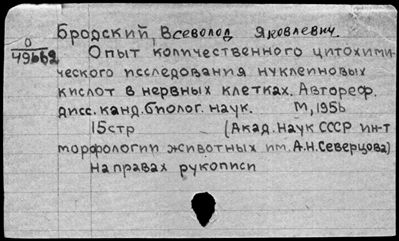 Бродский, Всеволод Яковлевич.
О
49662
Опыт количественного цитохими-
ческого исследования нуклеиновых
кислот в нервных клетках. Автореф.
дисс. канд. биолог. наук. М, 1956
15стр (Акад. Наук СССР ин-т
морфологии животных им. А.Н. Северцова)
На правах рукописи